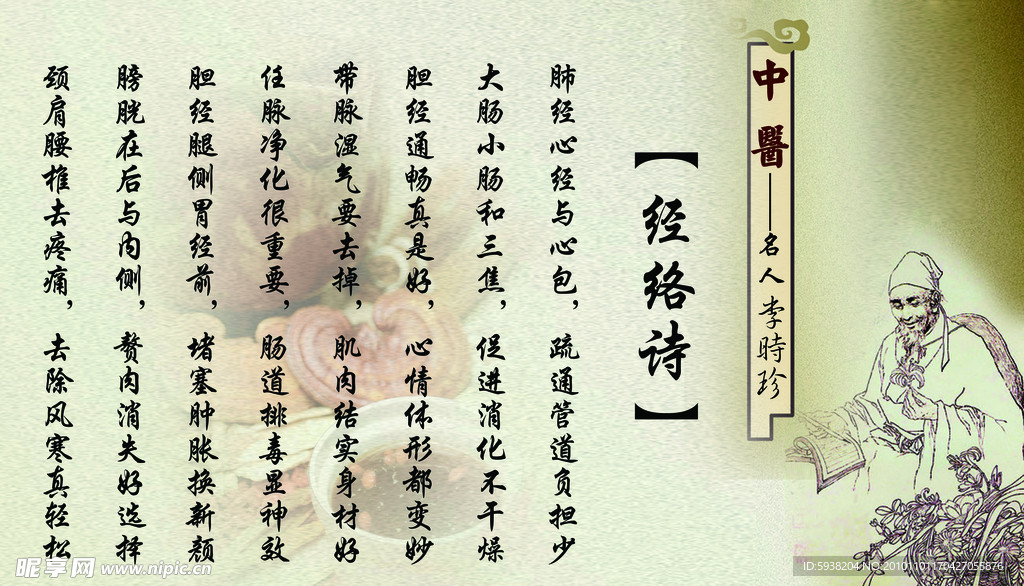 中醫——名人李時珍
【经络诗】
肺经心经与心包，疏通管道负担少
大肠小肠和三焦，促进消化不干燥
胆经通畅真是好，心情体形都变妙
带脉湿气要去掉，肌肉结实身材好
任脉净化很重要，肠道排毒显神效
胆经腿侧胃经前，堵塞肿胀换新颜
膀胱在后与内侧，赘肉消失好选择
颈肩腰椎去疼痛，去除风寒真轻松
昵享网 www.nipic.cn
ID:5938204 NO:20101101170427055876